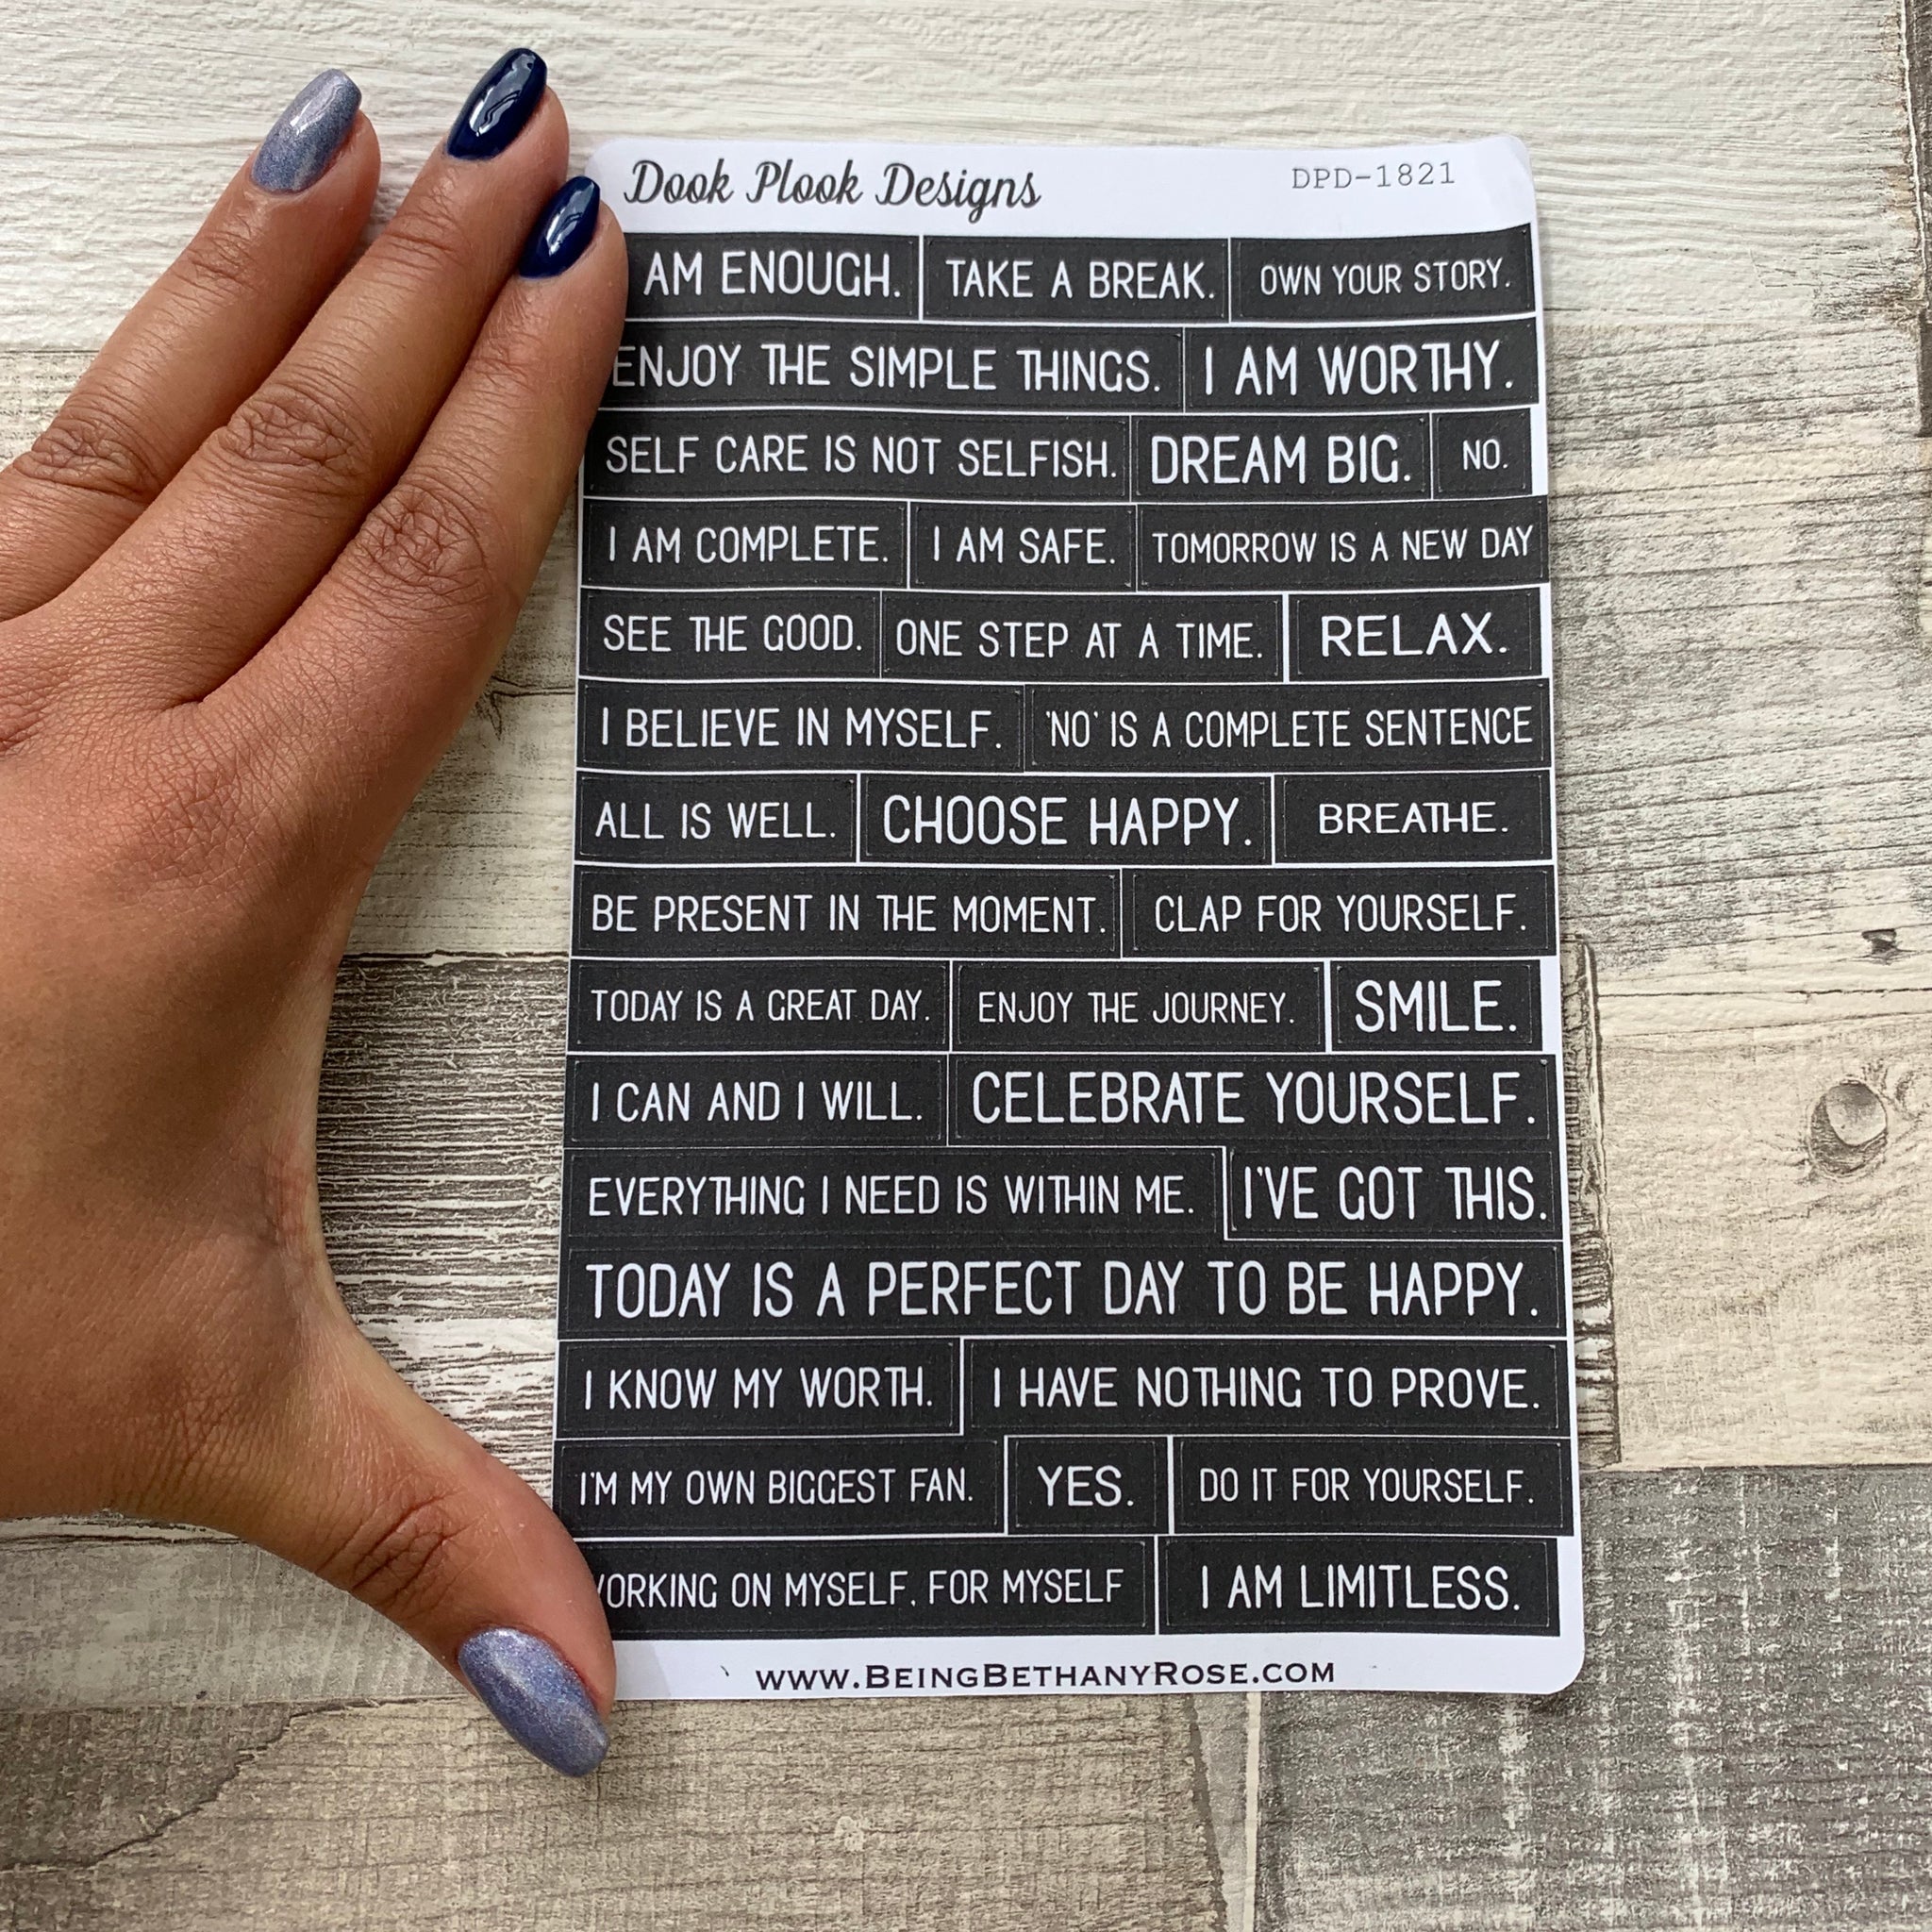 Dook Plook Designs DPD-1821
AM ENOUGH. TAKE A BREAK. OWN YOUR STORY.
ENJOY THE SIMPLE THINGS. I AM WORTHY.
SELF CARE IS NOT SELFISH. DREAM BIG. NO.
I AM COMPLETE. I AM SAFE. TOMORROW IS A NEW DAY
SEE THE GOOD. ONE STEP AT A TIME. RELAX.
I BELIEVE IN MYSELF. 'NO' IS A COMPLETE SENTENCE
ALL IS WELL. CHOOSE HAPPY. BREATHE.
BE PRESENT IN THE MOMENT. CLAP FOR YOURSELF.
TODAY IS A GREAT DAY. ENJOY THE JOURNEY. SMILE.
I CAN AND I WILL. CELEBRATE YOURSELF.
EVERYTHING I NEED IS WITHIN ME. I'VE GOT THIS.
TODAY IS A PERFECT DAY TO BE HAPPY.
I KNOW MY WORTH. I HAVE NOTHING TO PROVE.
I'M MY OWN BIGGEST FAN. YES. DO IT FOR YOURSELF.
ORKING ON MYSELF, FOR MYSELF I AM LIMITLESS.
www.BeingBethanyRose.com